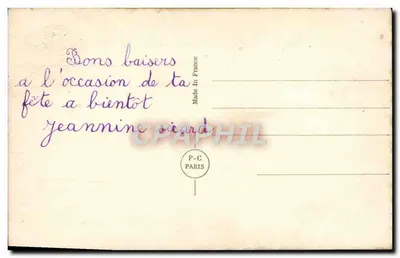 Bons baisers
a l'occasion de ta
fête a bientot
Jeannine
Made in France
P-C
PARIS
CPAPHIL